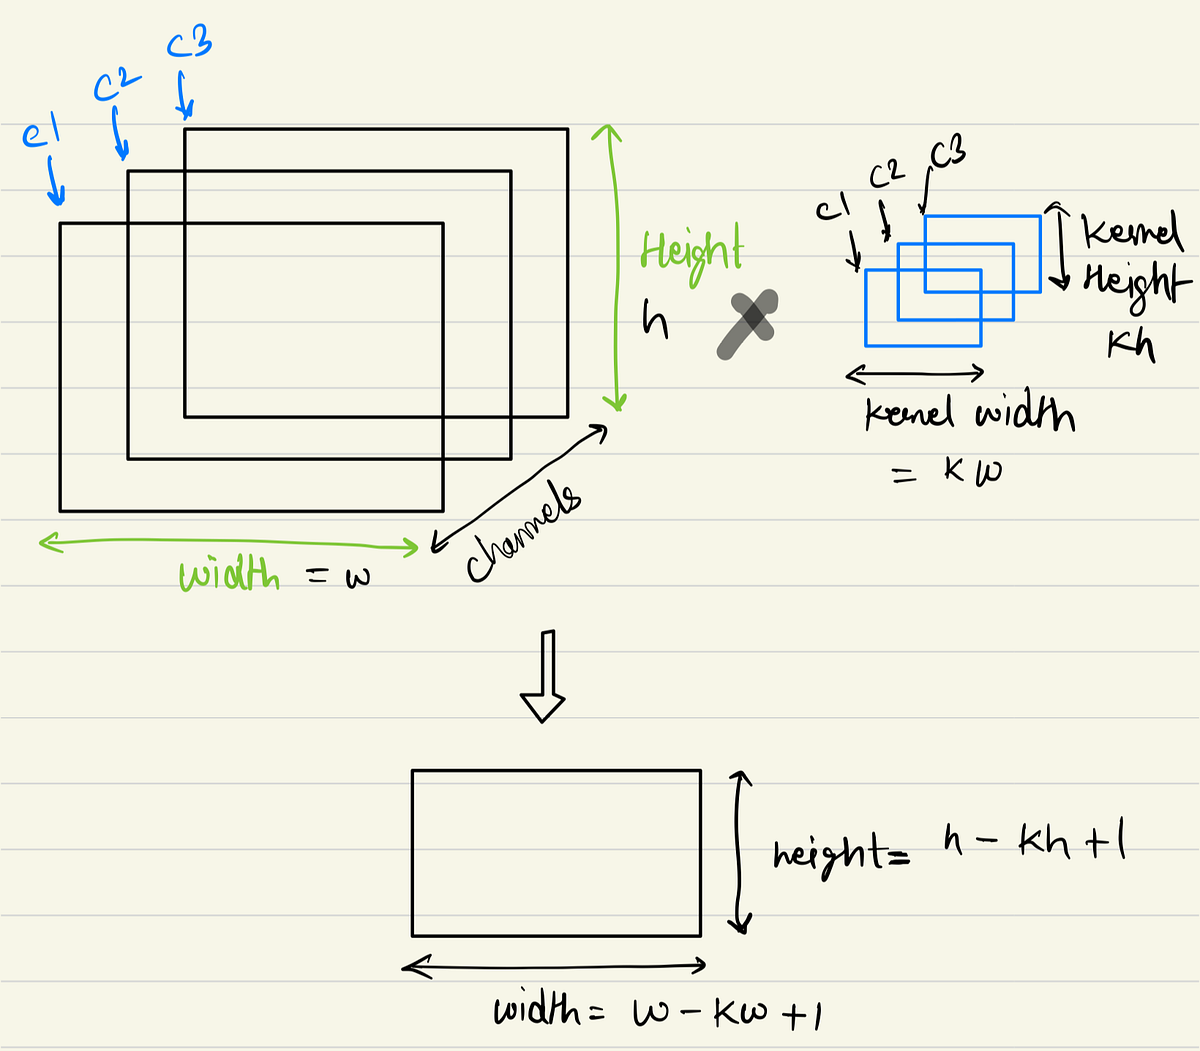 c1
c2
c3
Height
h
width = w
channels
c1
c2
c3
Kernel
Height
Kh
kernel width
= Kw
height= h - Kh +1
width= w - Kw +1